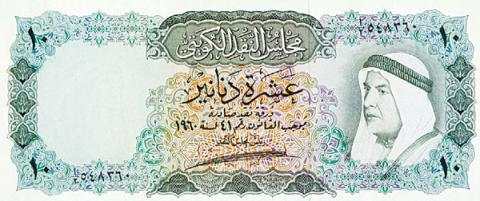 ١٠ مجلس النقد الكويتي ٥٤٨٣٦٠
عشرة دنانير
ورقة نقد صادرة
بموجب القانون رقم ٤١ لسنة ١٩٦٠
١٠ ٥٤٨٣٦٠ ١٠